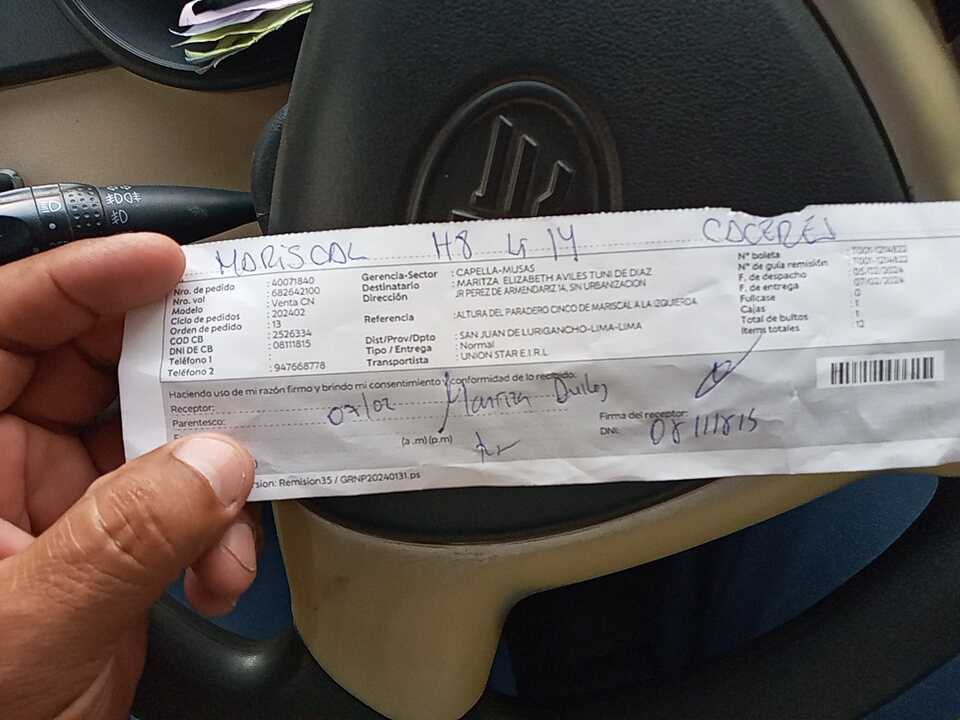 MARISCAL H8 Lt 14 CACERES
Nro. de pedido : 40071840
Nro. vol : 682642100
Modelo : Venta CN
Ciclo de pedidos : 202402
Orden de pedido : 13
COD CB : 2526334
DNI DE CB : 08111815
Teléfono 1 :
Teléfono 2 : 947668778
Gerencia-Sector : CAPELLA-MUSAS
Destinatario : MARITZA ELIZABETH AVILES TUNI DE DIAZ
Dirección JR PEREZ DE ARMENDARIZ 1A, SN URBANIZACION
Referencia : ALTURA DEL PARADERO CINCO DE MARISCAL A LA IZQUIERDA
Dist/Prov/Dpto : SAN JUAN DE LURIGANCHO-LIMA-LIMA
Tipo / Entrega : Normal
Transportista : UNION STAR E.I.R.L
N° boleta : T001-1214822
N° de guía remisión : T001-1214822
F. de despacho : 05/02/2024
F. de entrega : 07/02/2024
Fullcase : 0
Cajas : 1
Total de bultos : 1
Items totales : 12
Haciendo uso de mi razón firmo y brindo mi consentimiento y conformidad de lo recibido.
Receptor: Maritza
Parentesco: 07/02
(a .m) (p.m)
Firma del receptor:
DNI: 08111815
rsion: Remision35 / GRNP20240131.ps